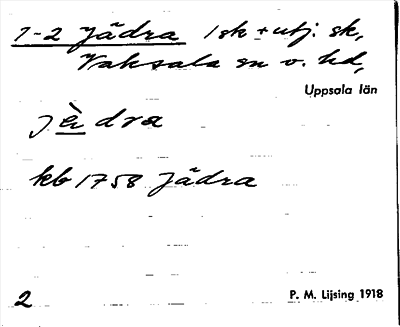 1-2 Jädra 1 sk + utj. sk,
Vaksala sn o. hd,
Uppsala län
jè̱dra
kb 1758 Jädra
2
P. M. Lijsing 1918